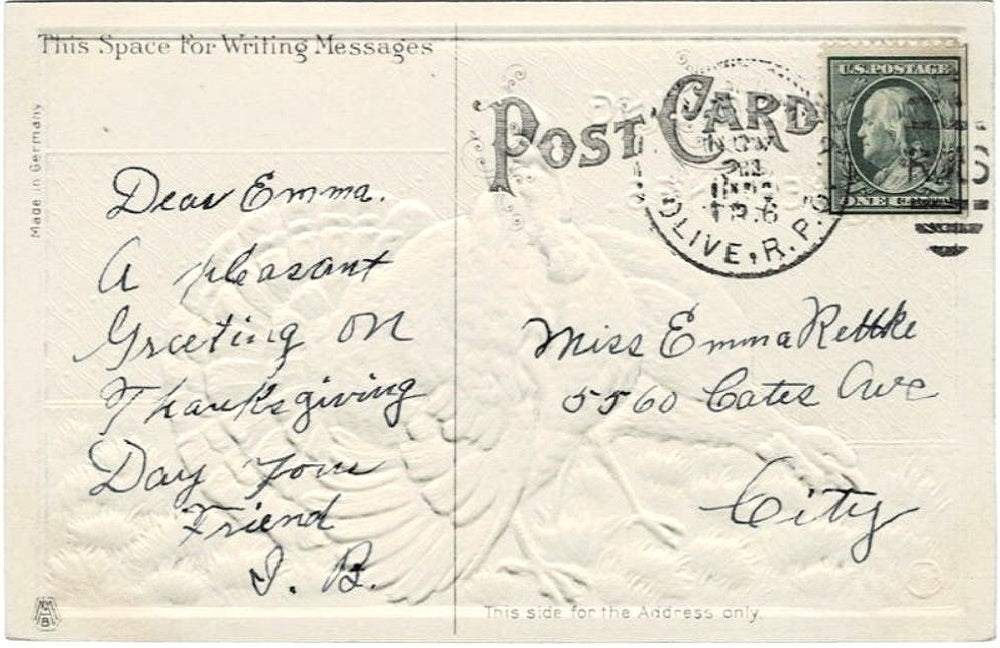 This Space For Writing Messages
Made in Germany
Dear Emma.
A pleasant
Greeting on
Thanksgiving
Day Your
Friend
I. B.
POST CARD
NOV
TR.6
OLIVE, R.P.O.
U.S. POSTAGE
ONE
Miss Emma Rettke
5560 Cates Ave
City
This side for the Address only.